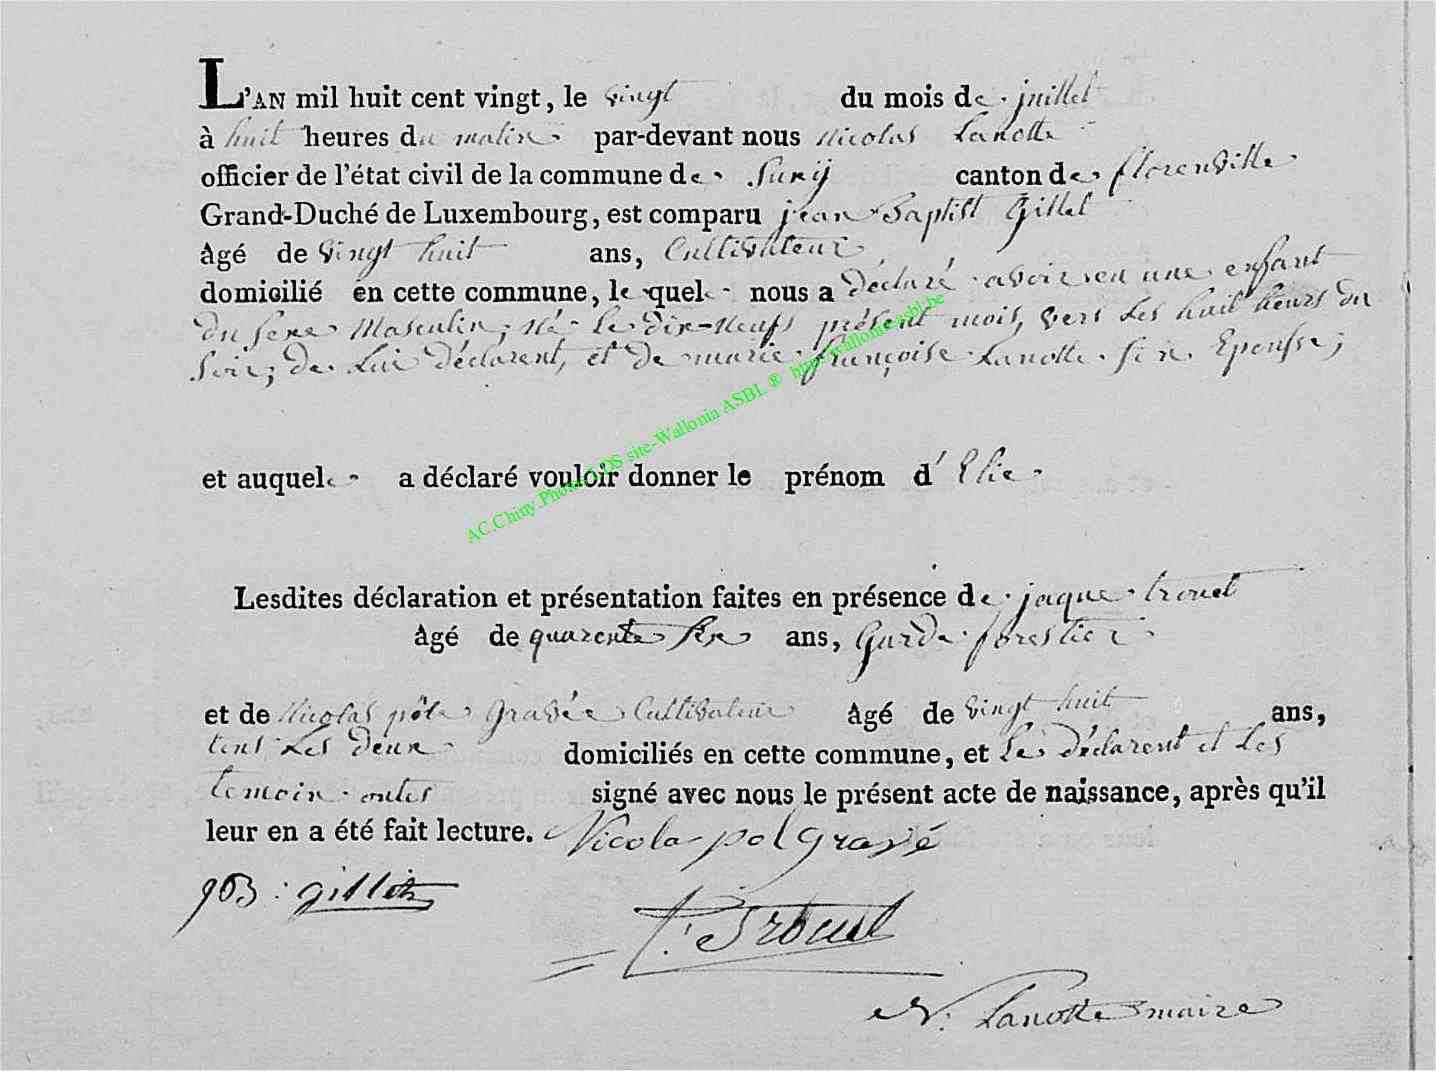 L'AN mil huit cent vingt, le vingt du mois de juillet
à huit heures du matin par-devant nous Nicolas Lanotte
officier de l'état civil de la commune de Suxy canton de florenville
Grand-Duché de Luxembourg, est comparu jean Baptist Gillet
âgé de vingt huit ans, Cultivateur
domicilié en cette commune, le quel nous a déclaré avoir eu une enfant
du sexe Masculin, Né le dix-neufs présent mois, vers les huit heurs du
soir; de lui déclarent, et de marie françoise Lanotte sa Epousse;
et auquel a déclaré vouloir donner le prénom d'Elie
AC.Chiny.Photo LDS site-Wallonia ASBL ®
Lesdites déclaration et présentation faites en présence de jaque trouet
âgé de quarente six ans, Garde forestier
et de Nicolas pôle Gravée Cultivateur âgé de vingt huit ans,
tous les deux domiciliés en cette commune, et le déclarent et les
temoin ontes signé avec nous le présent acte de naissance, après qu'il
leur en a été fait lecture. Nicola pol Gravé
JB: gillet
Trouet
N. Lanotte maire